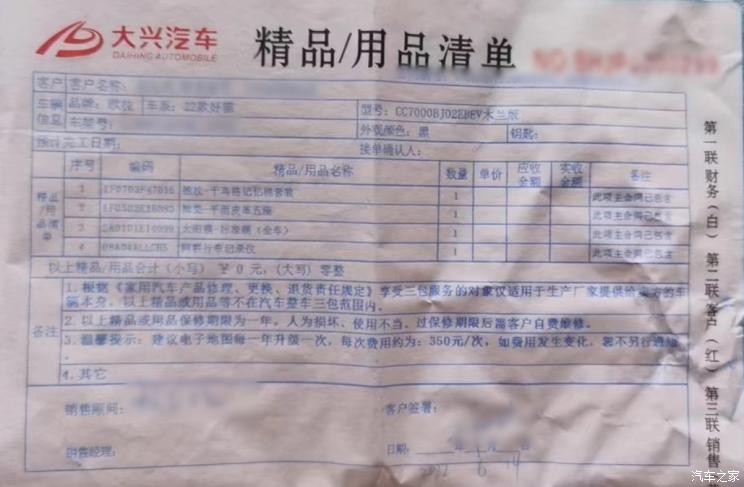 大兴汽车
DAIHING AUTOMOBILE
精品/用品清单
客户 客户名称:
车辆信息 品牌: 欧拉 车系: 22款好猫 型号: CC7000BJ02EBEV木兰版
车架号: 外观颜色: 黑 钥匙:
预计完工日期: 接单确认人:
精品/用品清单
序号 编码 精品/用品名称 数量 单价 应收金额 实收金额 备注
1 1 此项主合同已包含
2 1 此项主合同已包含
3 太阳膜-标准膜(全车) 1 此项主合同已包含
4 行车记录仪 1 此项主合同已包含
以上精品/用品合计(小写) ¥0元,(大写)零整
备注
1.根据《家用汽车产品修理、更换、退货责任规定》享受三包服务的对象仅适用于生产厂家提供给卖方的车
辆本身。以上精品或用品等不在汽车整车三包范围内。
2.以上精品或用品保修期限为一年。人为损坏、使用不当、过保修期限后需客户自费维修。
3.温馨提示: 建议电子地图每一年升级一次, 每次费用约为: 350元/次, 如费用发生变化, 恕不另行通知
。
4.其它
销售顾问: 客户签署:
销售经理: 日期: 年 月 日
2022 6 14
第一联财务(白) 第二联客户(红) 第三联销售
汽车之家